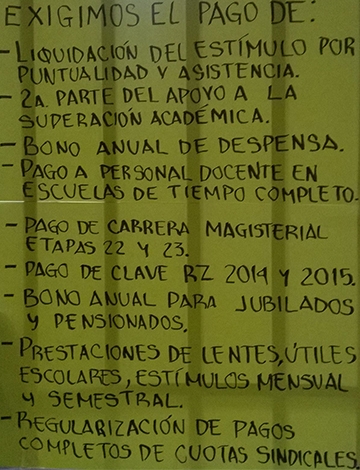 EXIGIMOS EL PAGO DE:
- LIQUIDACIÓN DEL ESTÍMULO POR
PUNTUALIDAD Y ASISTENCIA.
- 2A. PARTE DEL APOYO A LA
SUPERACIÓN ACADÉMICA.
- BONO ANUAL DE DESPENSA.
- PAGO A PERSONAL DOCENTE EN
ESCUELAS DE TIEMPO COMPLETO.
- PAGO DE CARRERA MAGISTERIAL
ETAPAS 22 Y 23.
- PAGO DE CLAVE RZ 2014 Y 2015.
- BONO ANUAL PARA JUBILADOS
Y PENSIONADOS.
- PRESTACIONES DE LENTES, ÚTILES
ESCOLARES, ESTÍMULOS MENSUAL
Y SEMESTRAL.
- REGULARIZACIÓN DE PAGOS
COMPLETOS DE CUOTAS SINDICALES